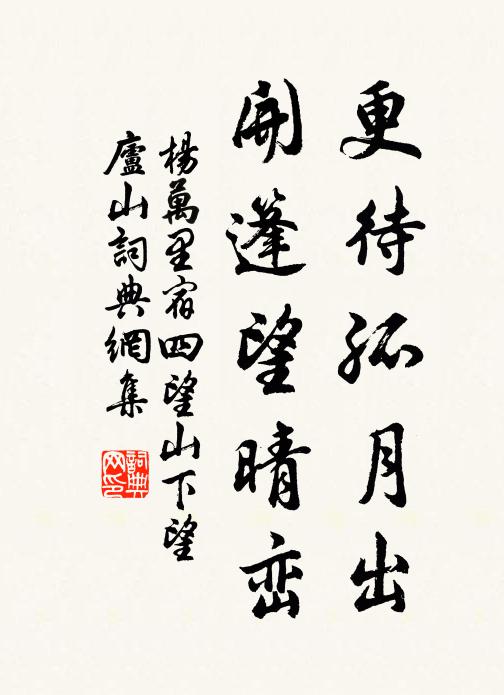 更待孤月出
開篷望晴峦
楊萬里宿四望山下望
廬山詞典網集
詞典
网印